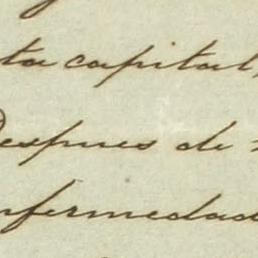 ta capital,
Despues de
nfermedad